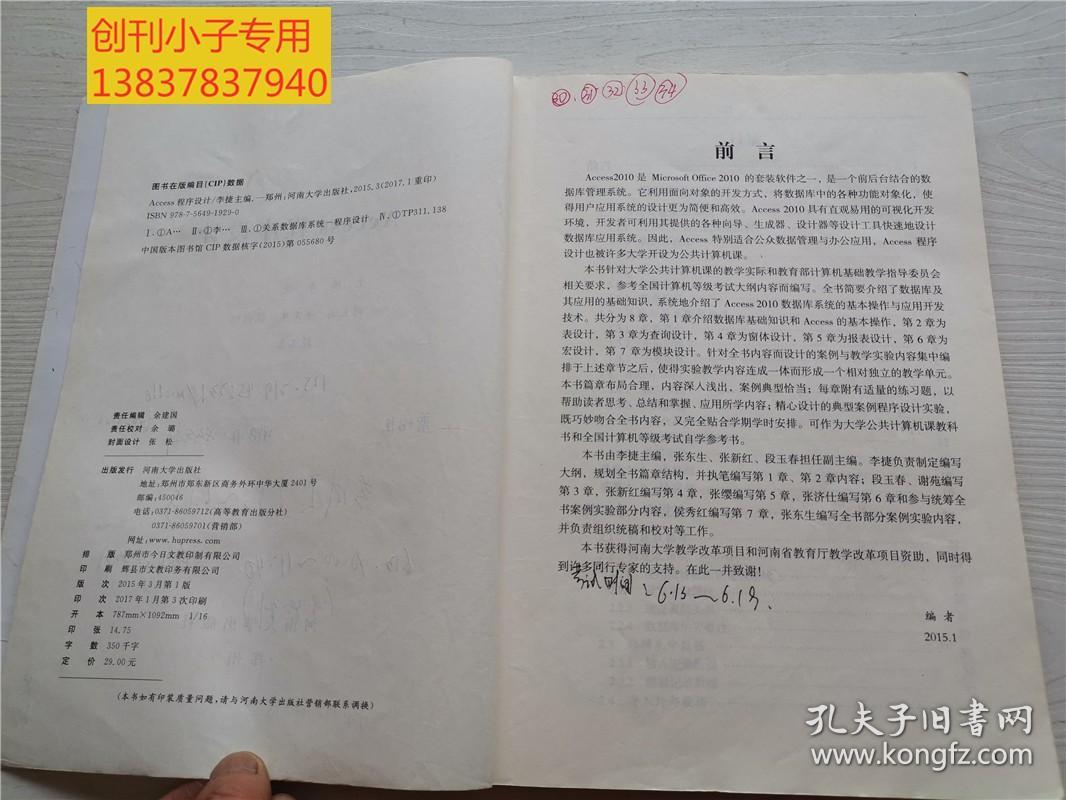 创刊小子专用
13837837940
图书在版编目(CIP)数据
Access程序设计/李捷主编.—郑州:河南大学出版社,2015.3(2017.1重印)
ISBN 978-7-5649-1929-0
Ⅰ.①A… Ⅱ.①李… Ⅲ.①关系数据库系统—程序设计 Ⅳ.①TP311.138
中国版本图书馆CIP数据核字(2015)第055680号
责任编辑 余建国
责任校对 余璐
封面设计 张松
出版发行 河南大学出版社
地址:郑州市郑东新区商务外环中华大厦2401号
邮编:450046
电话:0371-86059712(高等教育出版分社)
0371-86059701(营销部)
网址:www.hupress.com
排 版 郑州市今日文教印制有限公司
印 刷 辉县市文教印务有限公司
版 次 2015年3月第1版
印 次 2017年1月第3次印刷
开 本 787mm×1092mm 1/16
印 张 14.75
字 数 350千字
定 价 29.00元
(本书如有印装质量问题,请与河南大学出版社营销部联系调换)
32 33 34
前 言
Access2010是 Microsoft Office 2010 的套装软件之一,是一个前后台结合的数
据库管理系统。它利用面向对象的开发方式,将数据库中的各种功能对象化,使
得用户应用系统的设计更为简便和高效。Access 2010具有直观易用的可视化开发
环境,开发者可利用其提供的各种向导、生成器、设计器等设计工具快速地设计
数据库应用系统。因此,Access 特别适合公众数据管理与办公应用,Access 程序
设计也被许多大学开设为公共计算机课。
本书针对大学公共计算机课的教学实际和教育部计算机基础教学指导委员会
相关要求,参考全国计算机等级考试大纲内容而编写。全书简要介绍了数据库及
其应用的基础知识,系统地介绍了Access 2010数据库系统的基本操作与应用开发
技术。共分为8章,第1章介绍数据库基础知识和Access的基本操作,第2章为
表设计,第3章为查询设计,第4章为窗体设计,第5章为报表设计,第6章为
宏设计,第7章为模块设计。针对全书内容而设计的案例与教学实验内容集中编
排于上述章节之后,使得实验教学内容连成一体而形成一个相对独立的教学单元。
本书篇章布局合理,内容深入浅出,案例典型恰当;每章附有适量的练习题,以
帮助读者思考、总结和掌握、应用所学内容;精心设计的典型案例程序设计实验,
既巧妙吻合全书内容,又完全贴合学期学时安排。可作为大学公共计算机课教科
书和全国计算机等级考试自学参考书。
本书由李捷主编,张东生、张新红、段玉春担任副主编。李捷负责制定编写
大纲,规划全书篇章结构,并执笔编写第1章、第2章内容;段玉春、谢苑编写
第3章,张新红编写第4章,张缨编写第5章,张济仕编写第6章和参与统筹全
书案例实验部分内容,侯秀红编写第7章,张东生编写全书部分案例实验内容,
并负责组织统稿和校对等工作。
本书获得河南大学教学改革项目和河南省教育厅教学改革项目资助,同时得
到许多同行专家的支持。在此一并致谢!
考试时间
编 者
2015.1
孔夫子旧书网
www.kongfz.com